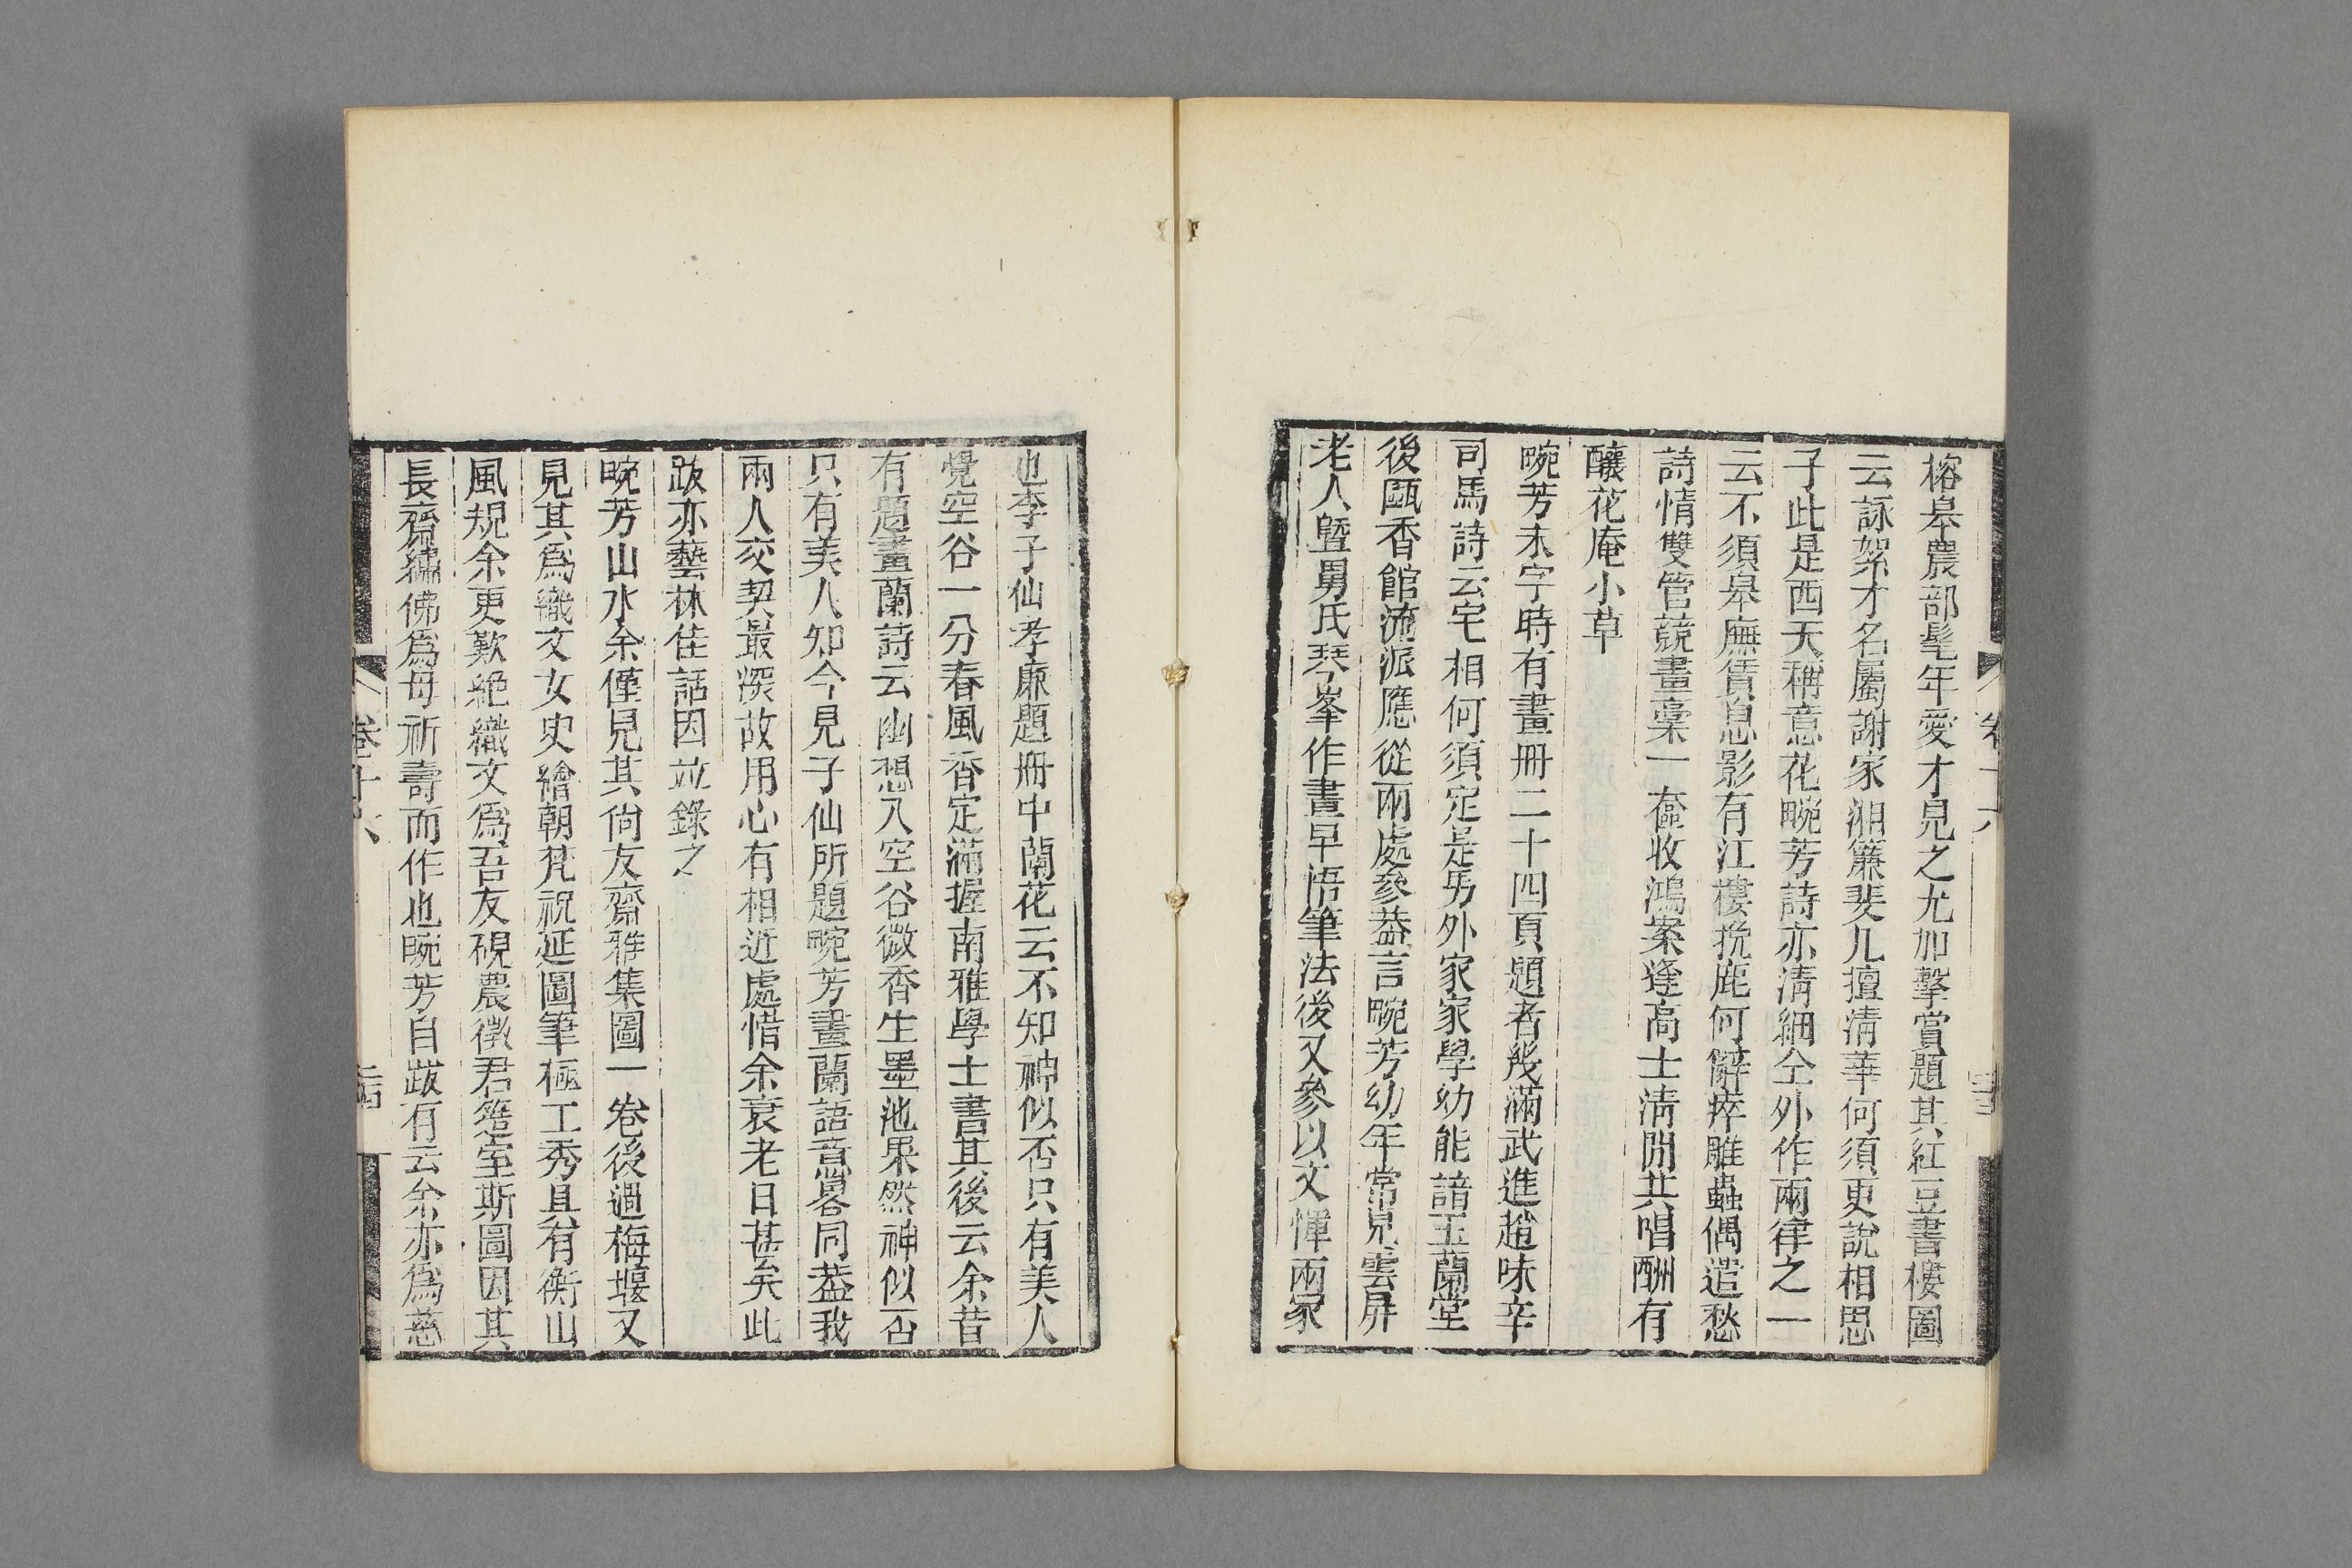 榕皋農部髦年愛才見之尤加擊賞題其紅豆書樓圖
云詠絮才名屬謝家湘簾斐几擅清華何須更說相思
子此是西天稱意花畹芳詩亦清細仝外作兩律之一
云不須皋廡賃息影有江樓挽鹿何辭瘁雕蟲偶遣愁
詩情雙管競畫稾一奩收鴻案逢高士清閒共唱酬有
釀花庵小草
畹芳未字時有畫冊二十四頁題者幾滿武進趙味辛
司馬詩云宅相何須定是男外家家學幼能諳玉蘭堂
後甌香館流派應從兩處參葢言畹芳幼年常見雲屏
老人曁舅氏琴峯作畫早悟筆法後又參以文惲兩家
也李子仙孝廉題冊中蘭花云不知神似否只有美人
覺空谷一分春風香定滿握南雅學士書其後云余昔
有題畫蘭詩云幽想入空谷微香生墨池果然神似否
只有美人知今見子仙所題畹芳畫蘭語意畧同葢我
兩人交契最深故用心有相近處惜余衰老日甚矣此
跋亦藝林佳話因竝錄之
畹芳山水余僅見其尙友齋雅集圖一卷後過梅堰又
見其爲織文女史繪朝梵祝延圖筆極工秀具有衡山
風規余更歎絶織文爲吾友硯農徵君簉室斯圖因其
長齋繡佛爲母祈壽而作也畹芳自跋有云余亦爲慈
卷十六